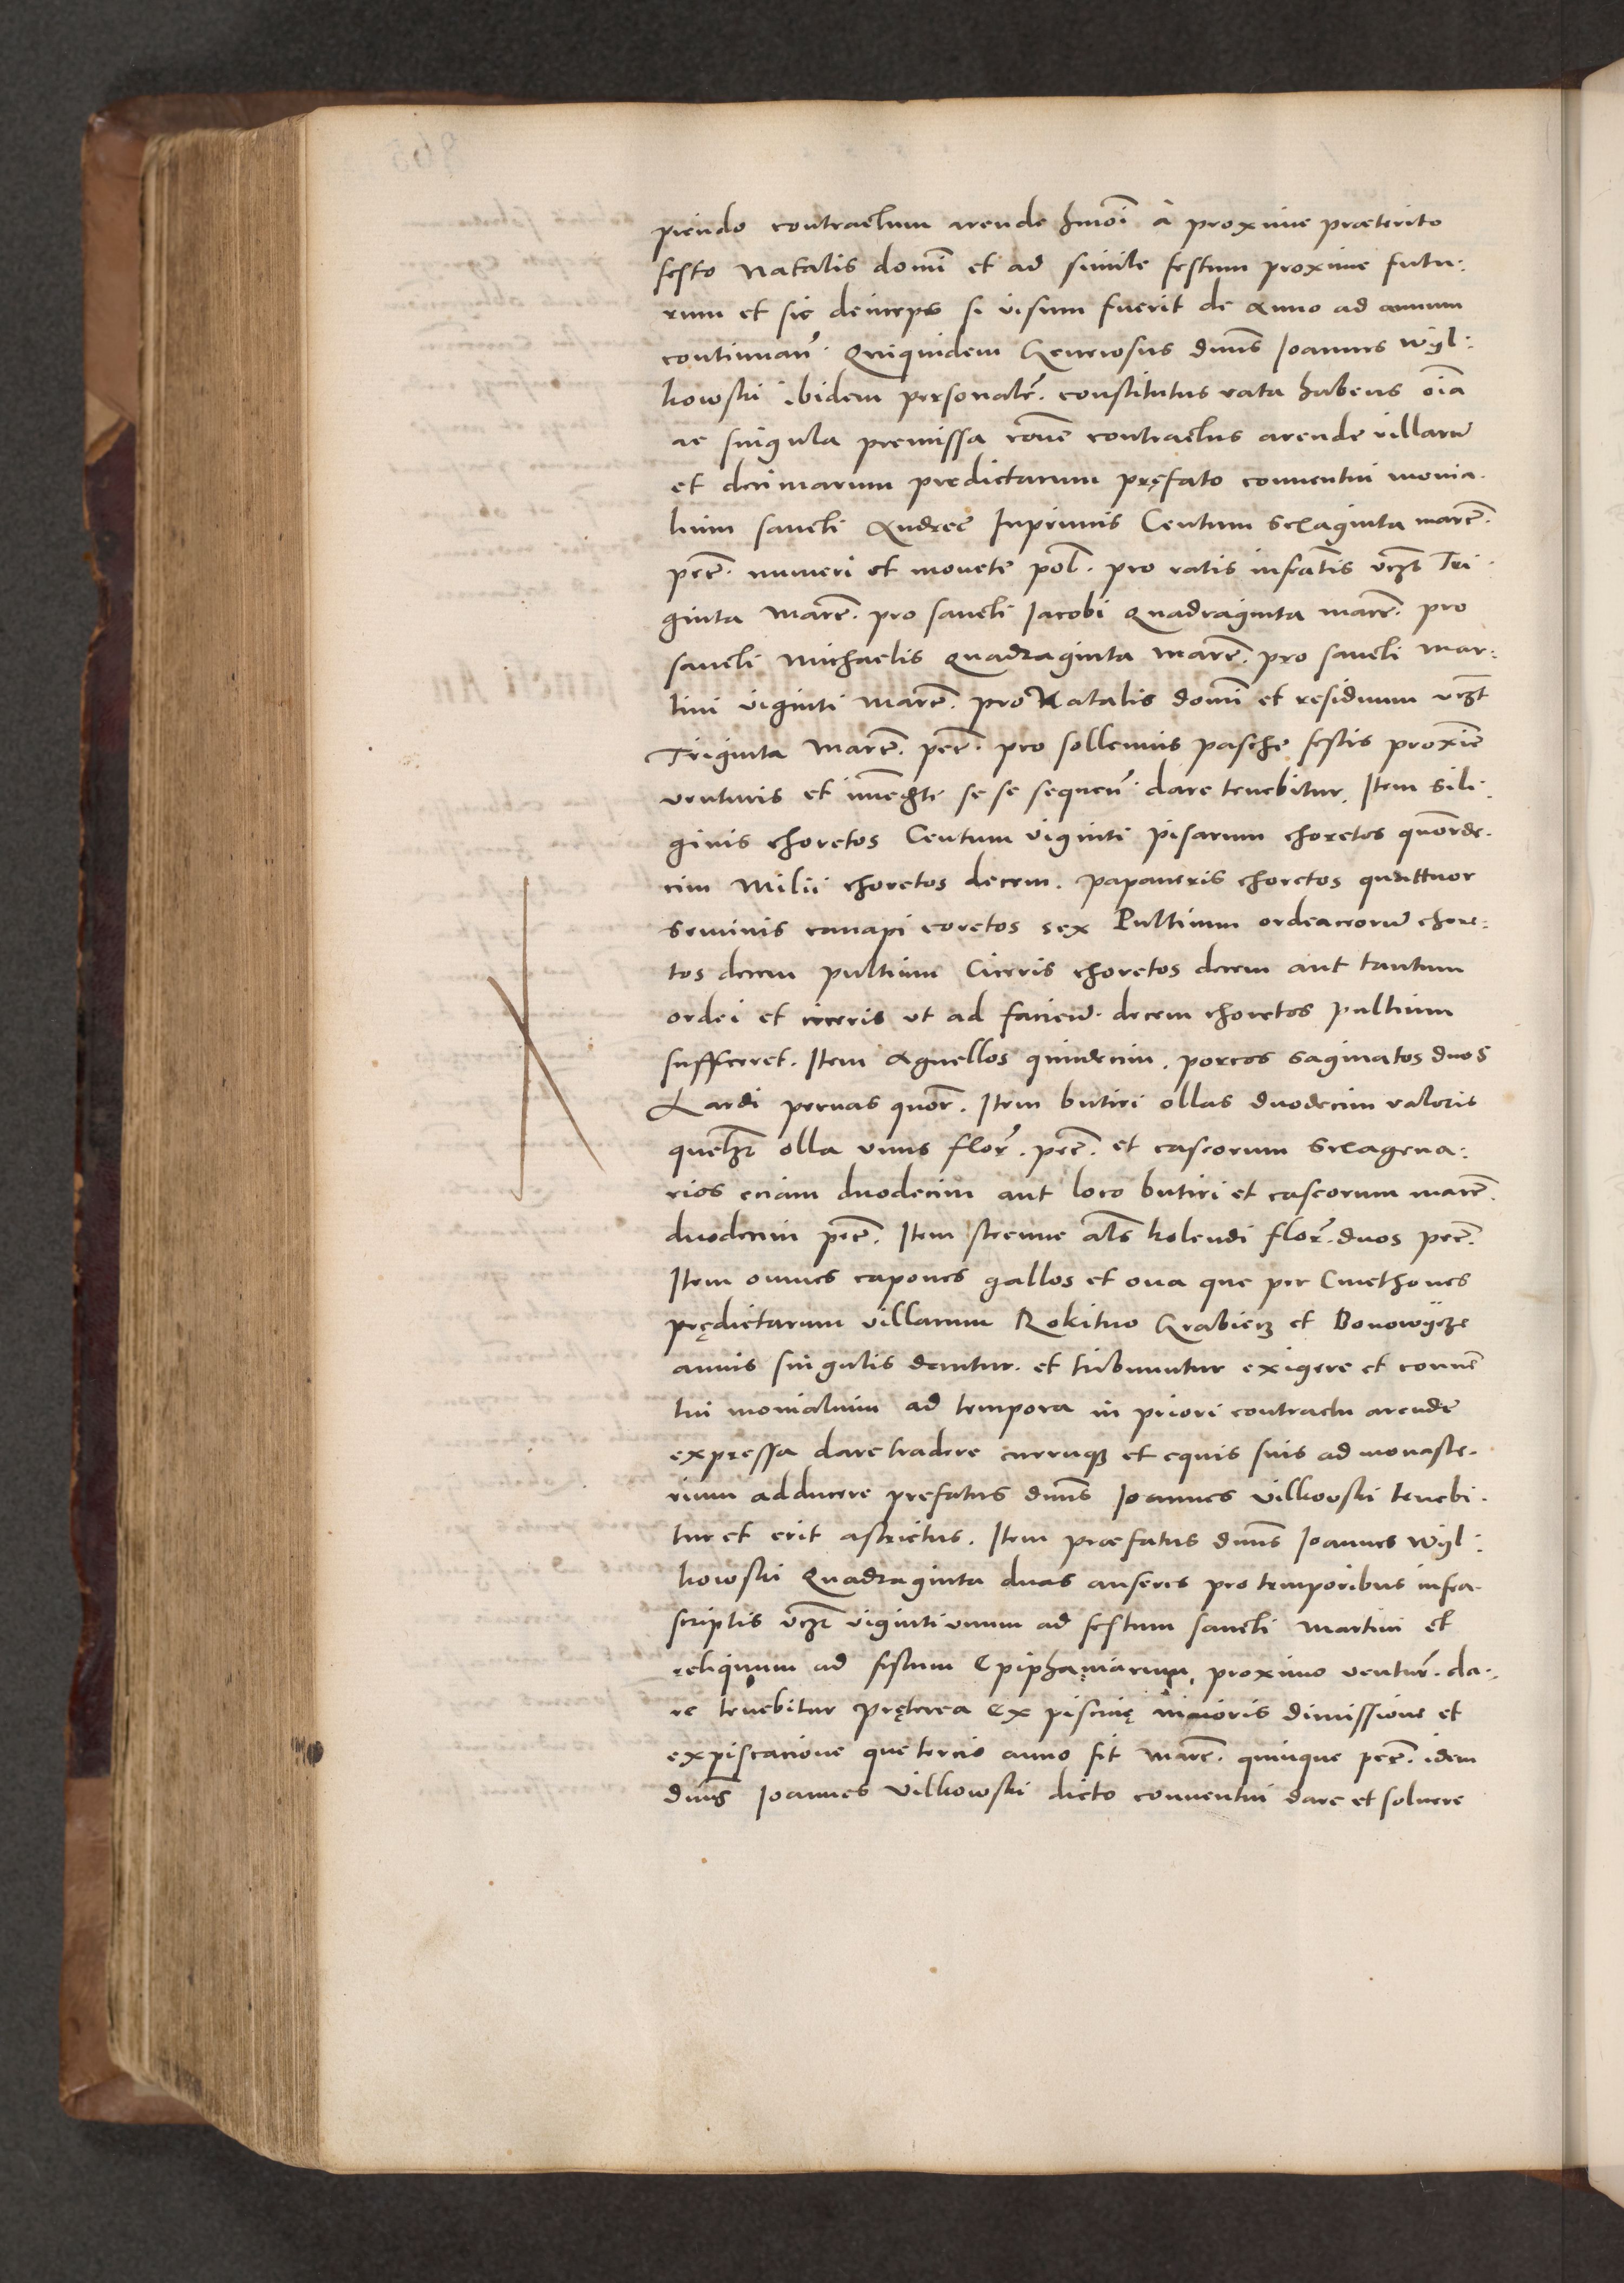 piendo contractum arende hmoi a proxime præterito
festo Natalis domi et ad simile festum proxime futu:
rum et sic deinceps si visum fuerit de Anno ad annum
continuan. Quiquidem Generosus dnus Joannes Wÿl:
kowski ibidem personalr. constitutus rata habens oia
ac singula premissa rone contractus arende villaru
et decimarum predictarum pręfato conventui monia.
lium sancti Andree Inprimis Centum sexaginta marc.
pec. numeri et monete pol. pro ratis infratis vczt Tri
ginta Marc. pro sancti Jacobi Quadraginta marc. pro
sancti Michaelis Quadraginta Marc. pro sancti Mar:
tini viginti Marc. pro Natalis domi et residuum vczt
Triginta Marc. pec. pro sollemnis pasche festis proxie
venturis et se se sequen. dare tenebitur. Item sili
ginis choretos Centum viginti pisarum choretos quorde.
cim Milii choretos decem. papaveris choretos quattuor
seminis canapi coretos sex Pultium ordeaceoru chore:
tos decem pultium Ciceris choretos decem aut tantum
ordei et ciceris ut ad faciend. decem choretos pultium
sufficeret. Item Agnellos quindecim. porcos saginatos duos
Lardi pernas quor. Item butiri ollas duodecim valoris
quelibet olla unius flor. pec. et caseorum sexagena:
rios eciam duodecim aut loco butiri et caseorum marc.
duodecim pec. Item strenne als kolendi flor. duos pec.
Item omnes capones gallos et ova que per Cmethones
prędictarum villarum Rokitno Grabiecz et Bonowÿcze
annis singulis dantur. et tribuuntur exigere et conven
tui monialium ad tempora in priori contractu arende
expressa dare tradere curruque et equis suis ad monaste.
rium adducere prefatus dnus Joannes Vilkovski tenebi.
tur et erit astrictus. Item præfatus dnus Joannes Wÿl:
kowski Quadraginta duas anseres pro temporibus infra.
scriptis vczt viginti unum ad festum sancti Martini et
reliquum ad festum Epiphaniarum, proximo ventur. da.
re tenebitur pręterea Ex piscinę maioris dimissione et
expiscacione que tercio anno fit Marc. quinque pec. idem
dnus Joannes Vilkowski dicto conventui dare et solvere